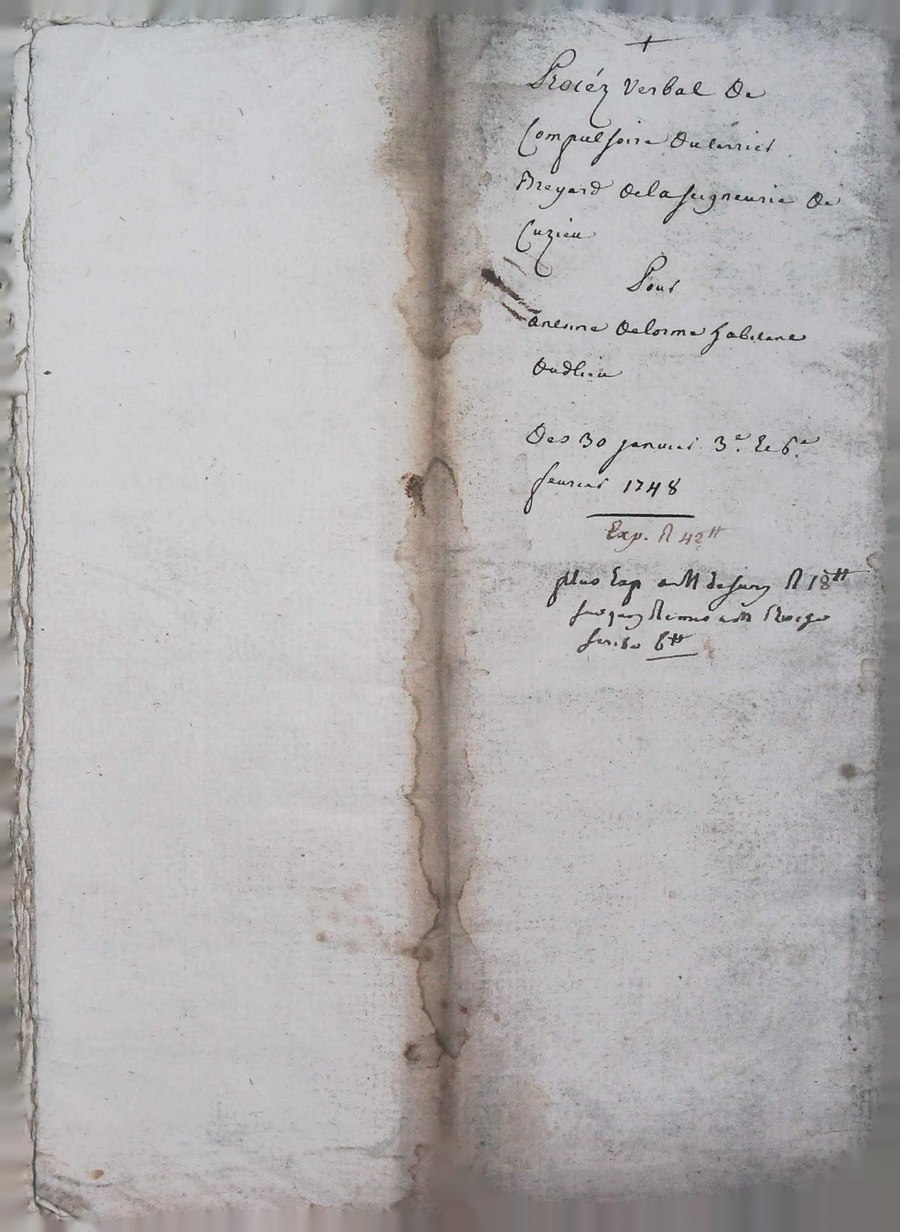 +
Procéz Verbal de
Compulsoire du terrier
Bregard de la seigneurie de
Cuzieu
Pour
Antoine Delorme habitant
dudlieu
Des 30 janvier 3e. & 6e.
fevrier 1748
Exp. R 42tt
plus Exp a M R 18tt
a M
6tt